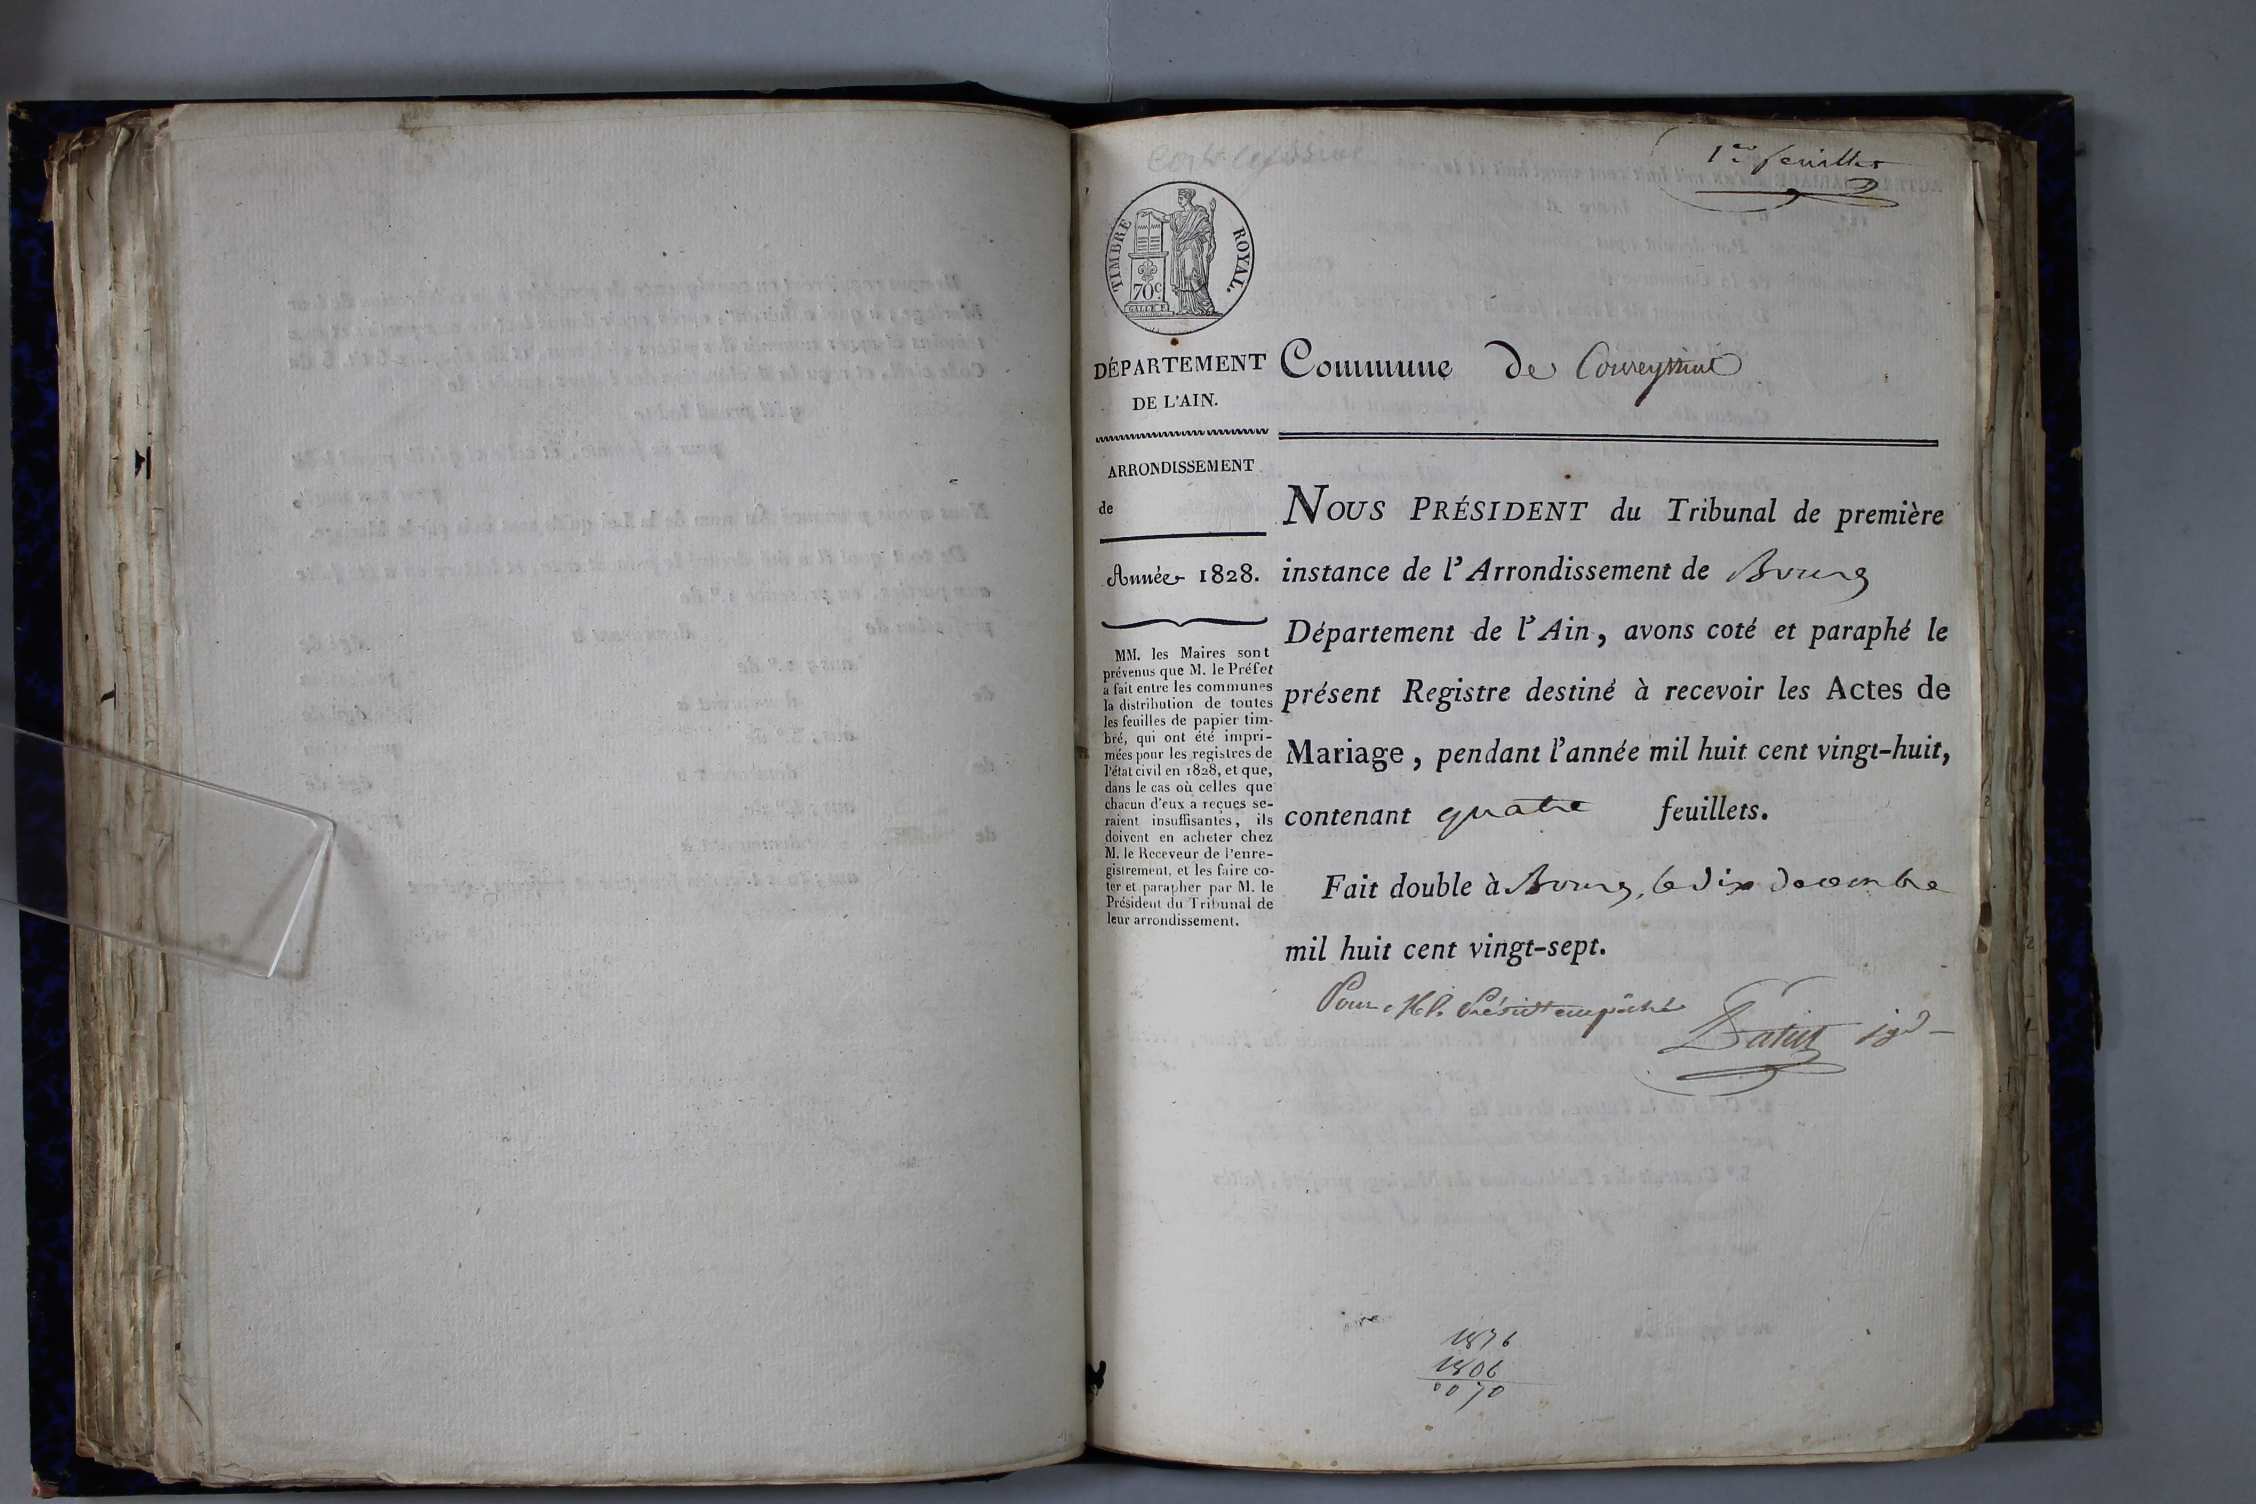 1er feuillet
TIMBRE ROYAL.
70c.
DÉPARTEMENT
DE L'AIN.
Commune de
ARRONDISSEMENT
de
Année 1828.
MM. les Maires sont
prévenus que M. le Préfet
a fait entre les communes
la distribution de toutes
les feuilles de papier tim-
bré, qui ont été impri-
mées pour les registres de
l'état civil en 1828, et que,
dans le cas où celles que
chacun d'eux a reçues se-
raient insuffisantes, ils
doivent en acheter chez
M. le Receveur de l'enre-
gistrement, et les faire co-
ter et parapher par M. le
Président du Tribunal de
leur arrondissement.
NOUS PRÉSIDENT du Tribunal de première
instance de l'Arrondissement de Bourg
Département de l'Ain, avons coté et paraphé le
présent Registre destiné à recevoir les Actes de
Mariage, pendant l'année mil huit cent vingt-huit,
contenant quatre feuillets.
Fait double à Bourg, le dix decembre
mil huit cent vingt-sept.
Pour M. le Présidt empêché
1876
1806
0070